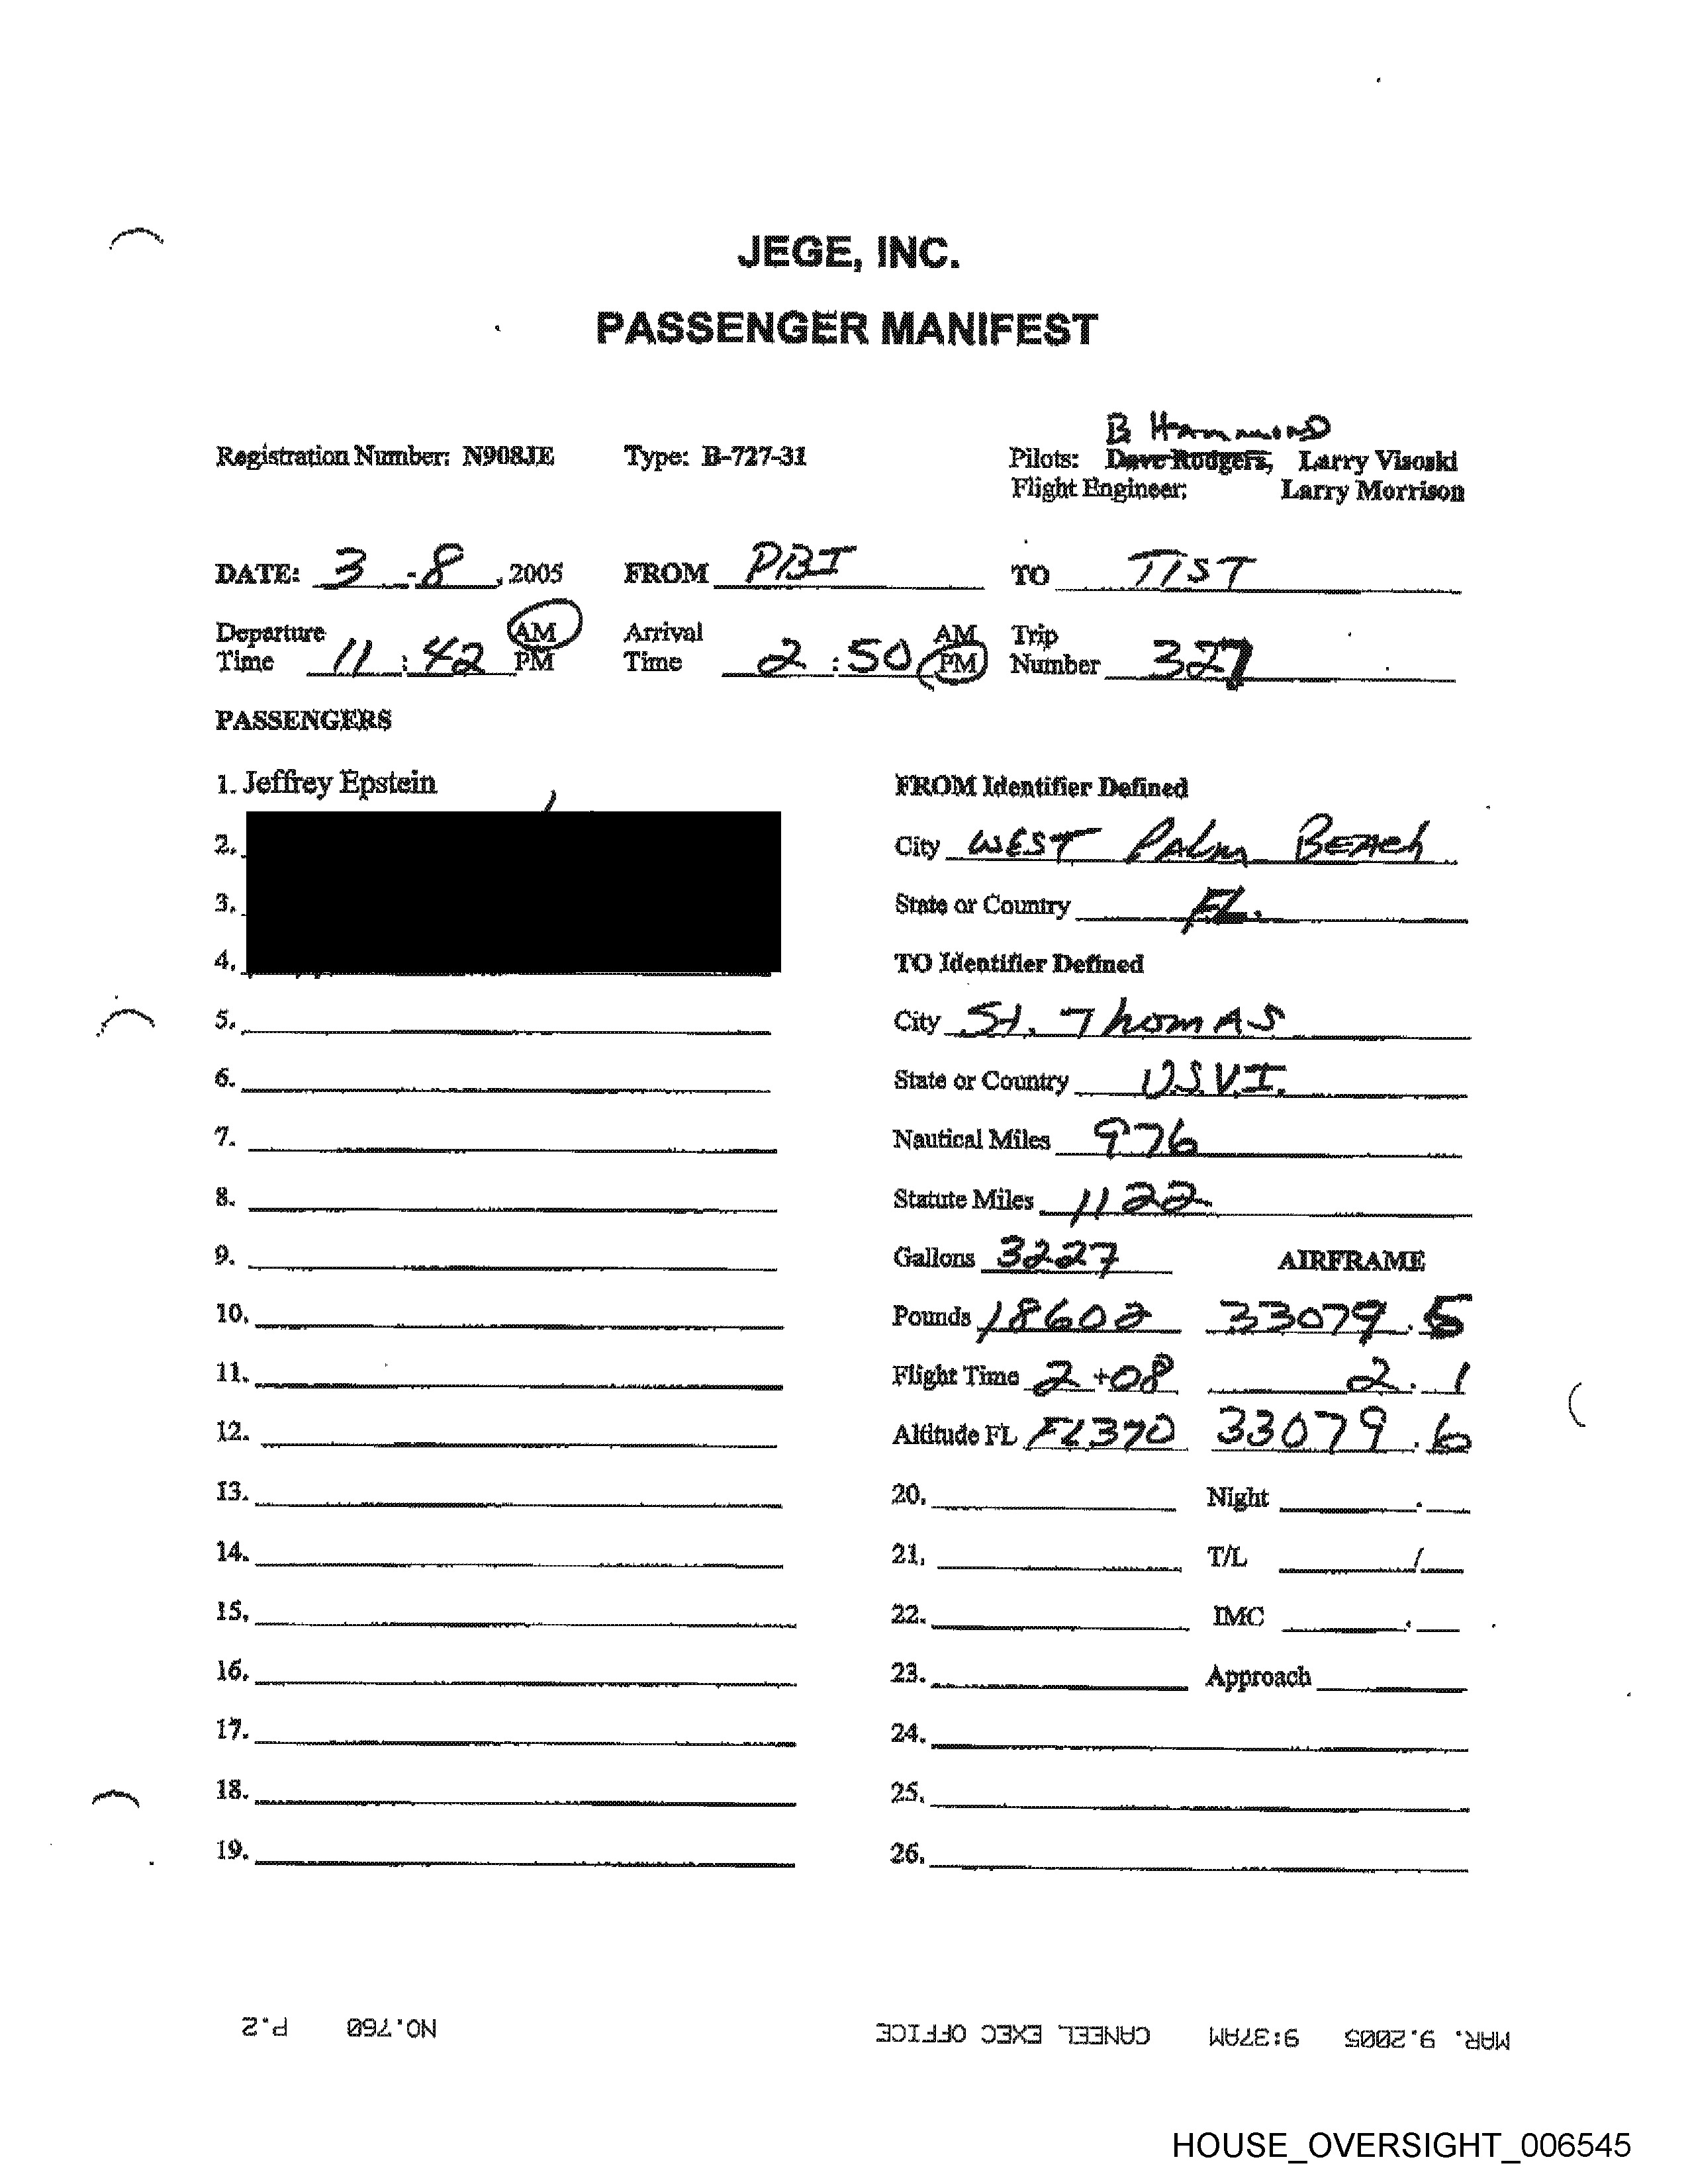 JEGE, INC.
PASSENGER MANIFEST
B Hammond
Registration Number: N908JE Type: B-727-31 Pilots: Dave Rodgers, Larry Visoski
Flight Engineer: Larry Morrison
DATE: 3 - 8, 2005 FROM PBI TO TIST
Departure Time 11:42 AM PM Arrival Time 2:50 AM PM Trip Number 327
PASSENGERS
1. Jeffrey Epstein
2.
3.
4.
5.
6.
7.
8.
9.
10.
11.
12.
13.
14.
15.
16.
17.
18.
19.
FROM Identifier Defined
City WEST PALM BEACH
State or Country FL.
TO Identifier Defined
City St. Thomas
State or Country U.S.V.I.
Nautical Miles 976
Statute Miles 1122
Gallons 3227 AIRFRAME
Pounds 18602 33079.5
Flight Time 2+08 2.1
Altitude FL FL370 33079.6
20. Night .
21. T/L /
22. IMC .
23. Approach
24.
25.
26.
MAR. 9.2005 9:37AM CANEEL EXEC OFFICE NO.760 P.2
HOUSE_OVERSIGHT_006545